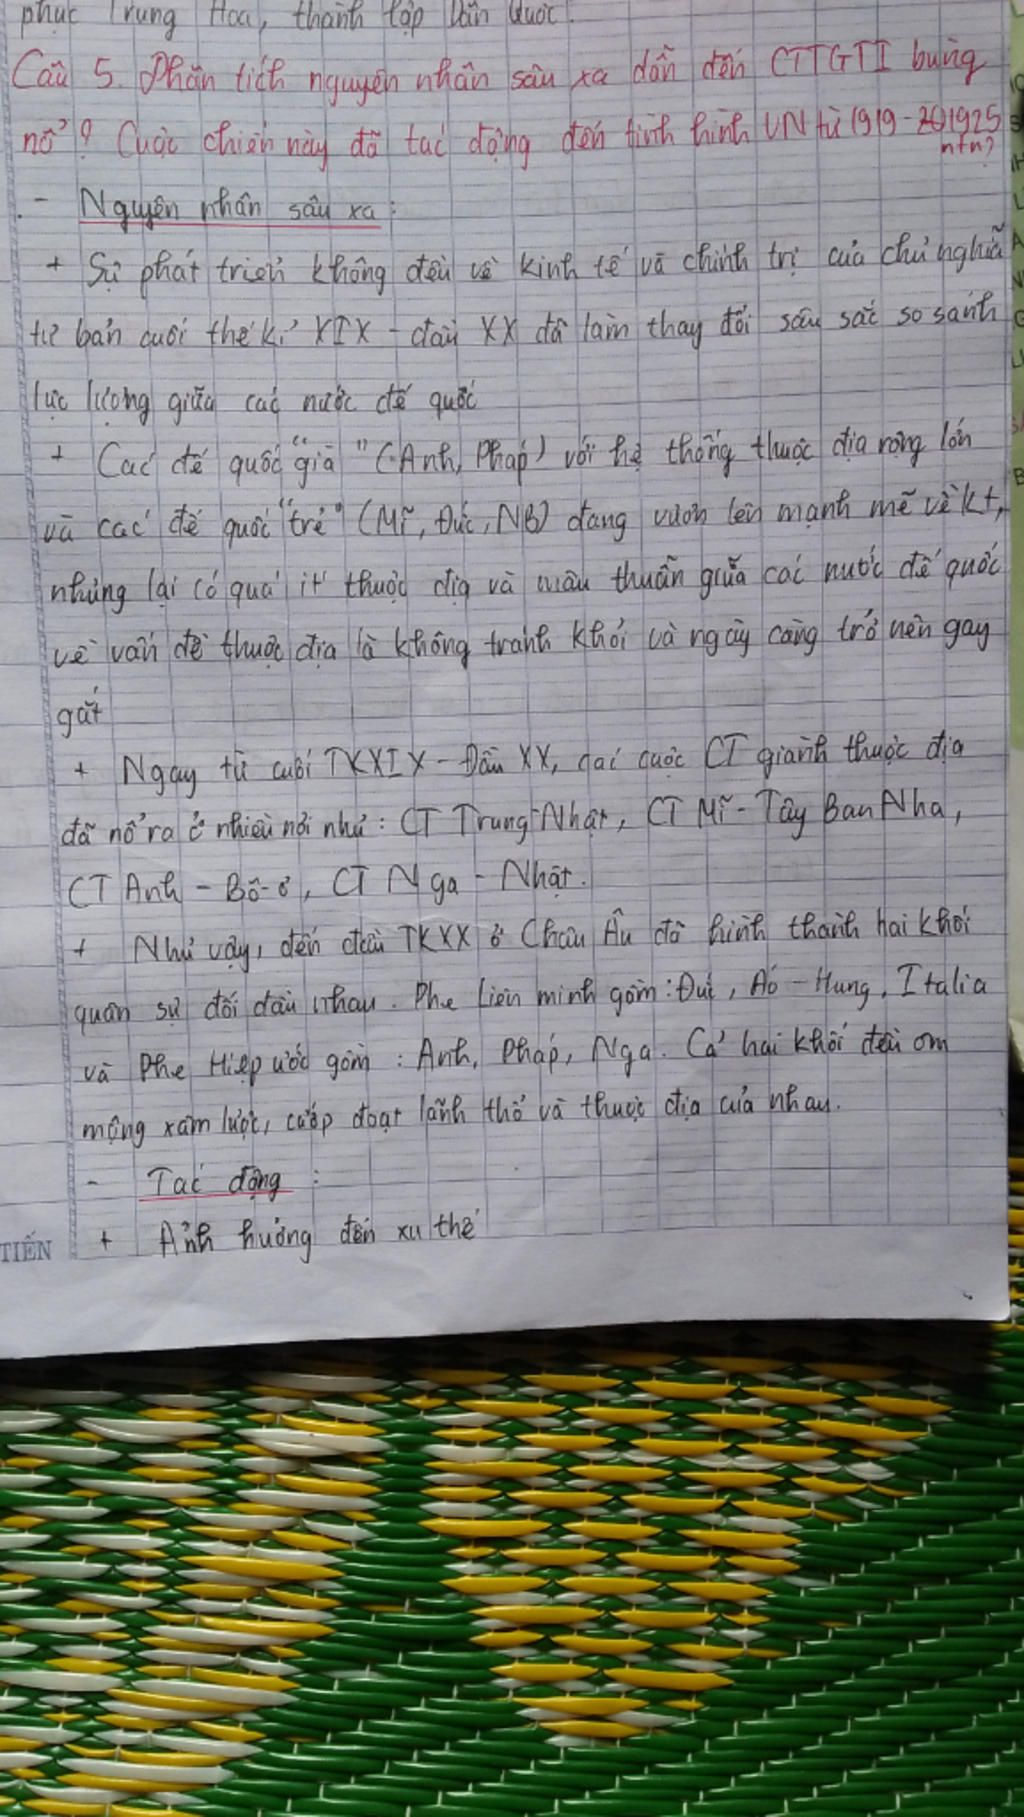 phục Trung Hoa, thành lập Dân Quốc.
Câu 5. Phân tích nguyên nhân sâu xa dẫn đến CTTGTI bùng
nổ? Cuộc chiến này đã tác động đến tình hình VN từ 1919-1925
ntn?
- Nguyên nhân sâu xa:
+ Sự phát triển không đều về kinh tế và chính trị của chủ nghĩa
tư bản cuối thế kỉ XIX - đầu XX đã làm thay đổi sâu sắc so sánh
lực lượng giữa các nước đế quốc
+ Các đế quốc "già" (Anh, Pháp) với hệ thống thuộc địa rộng lớn
và các đế quốc "trẻ" (Mĩ, Đức, NB) đang vươn lên mạnh mẽ về kt,
nhưng lại có quá ít thuộc địa và mâu thuẫn giữa các nước đế quốc
về vấn đề thuộc địa là không tránh khỏi và ngày càng trở nên gay
gắt
+ Ngay từ cuối TKXIX - Đầu XX, các cuộc CT giành thuộc địa
đã nổ ra ở nhiều nơi như: CT Trung-Nhật, CT Mĩ - Tây Ban Nha,
CT Anh - Bô-ơ, CT Nga - Nhật.
+ Như vậy, đến đầu TKXX ở Châu Âu đã hình thành hai khối
quân sự đối đầu nhau. Phe Liên minh gồm: Đức, Áo - Hung, Italia
và Phe Hiệp ước gồm: Anh, Pháp, Nga. Cả hai khối đều ôm
mộng xâm lược, cướp đoạt lãnh thổ và thuộc địa của nhau.
- Tác động:
+ Ảnh hưởng đến xu thế
TIẾN